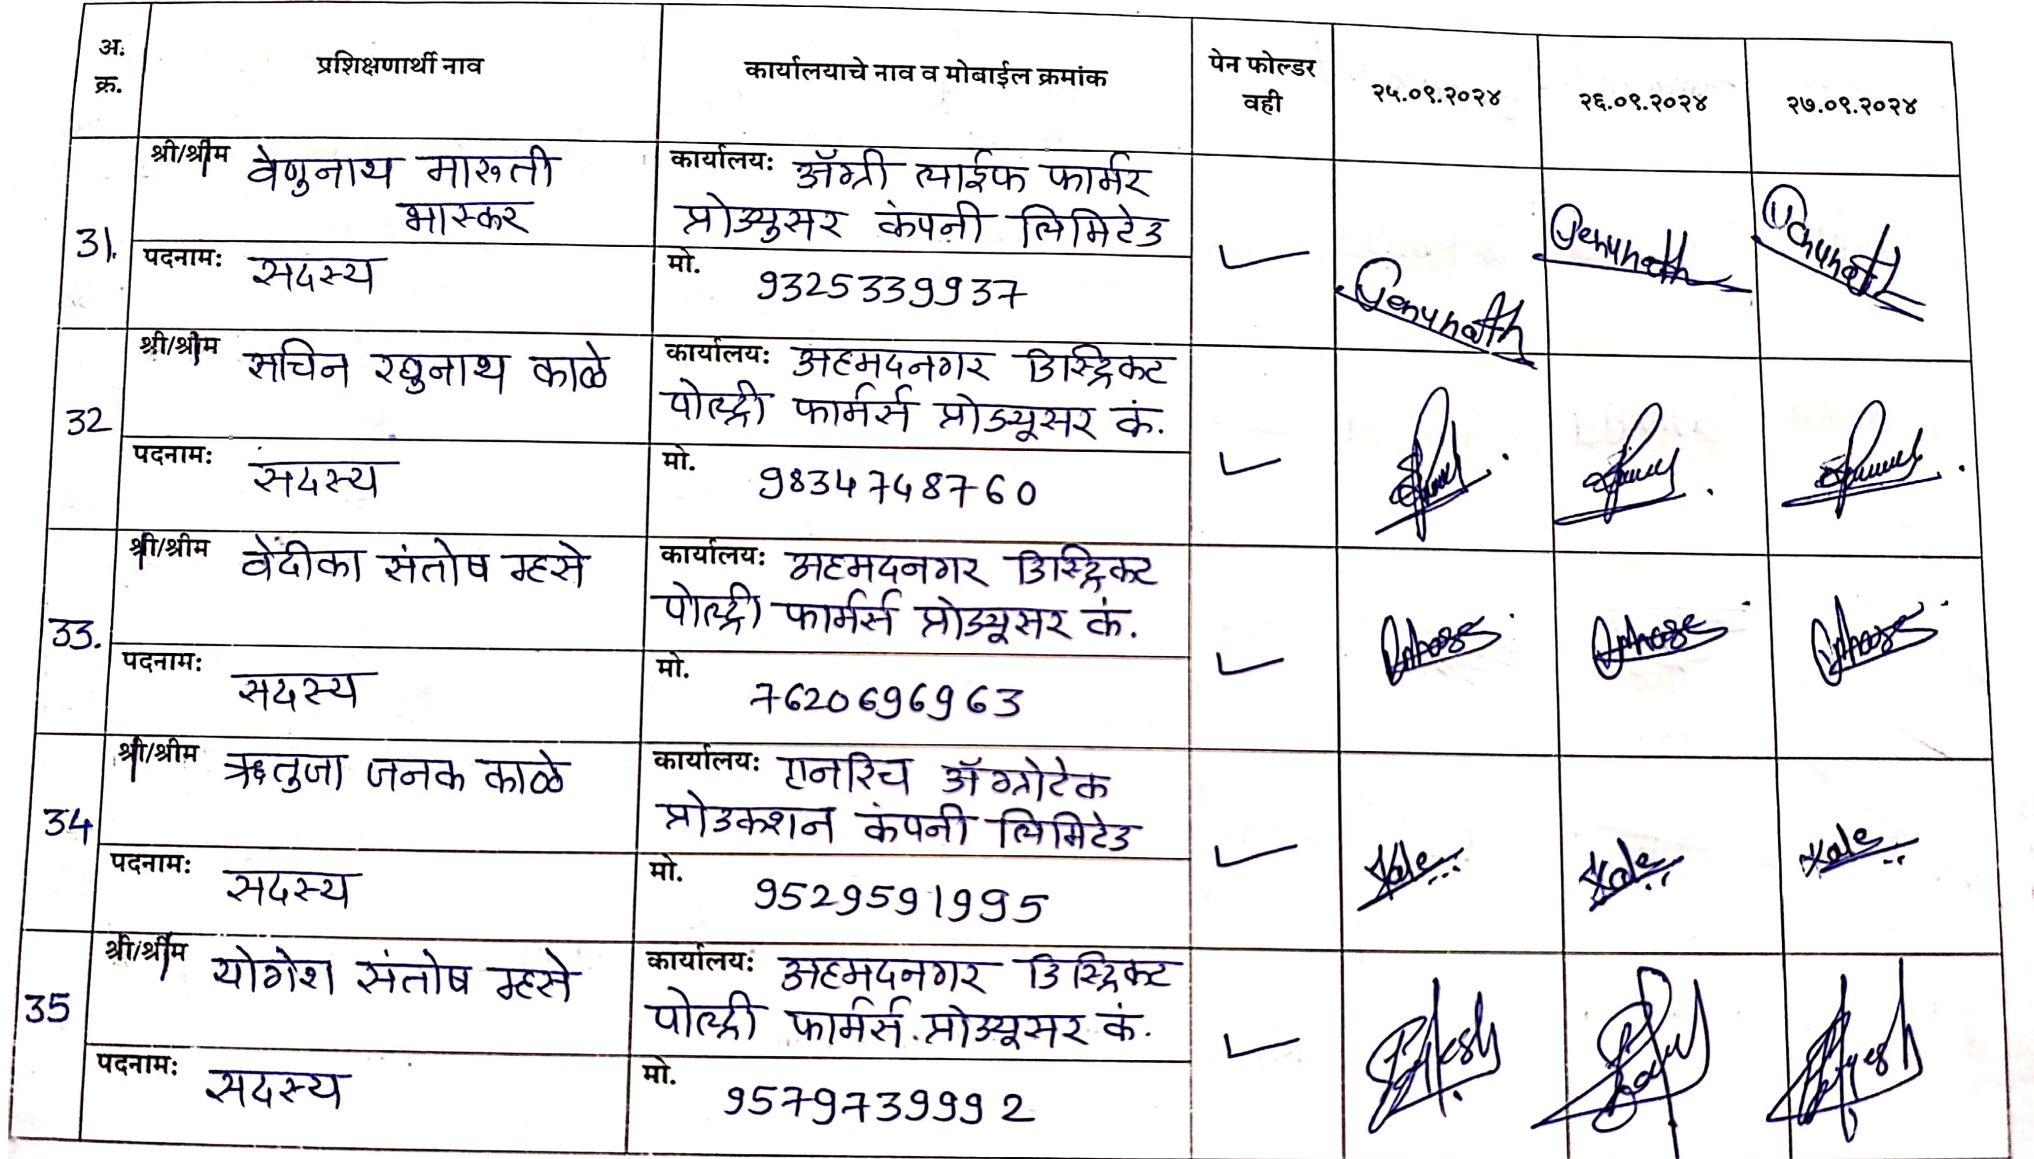 अ. क्र. प्रशिक्षणार्थी नाव कार्यालयाचे नाव व मोबाईल क्रमांक पेन फोल्डर वही २५.०९.२०२४ २६.०९.२०२४ २७.०९.२०२४
31. श्री/श्रीम वेणुनाथ मारुती
भास्कर
कार्यालय: ॲग्री लाईफ फार्मर
प्रोड्युसर कंपनी लिमिटेड
पदनाम: सदस्य
मो. 9325339937
Venunath Venunath Venunath
32 श्री/श्रीम सचिन रघुनाथ काळे
कार्यालय: अहमदनगर डिस्ट्रिक्ट
पोल्ट्री फार्मर्स प्रोड्यूसर कं.
पदनाम: सदस्य
मो. 9834748760
33. श्री/श्रीम वेदीका संतोष म्हसे
कार्यालय: अहमदनगर डिस्ट्रिक्ट
पोल्ट्री फार्मर्स प्रोड्यूसर कं.
पदनाम: सदस्य
मो. 7620696963
34 श्री/श्रीम ऋतुजा जनक काळे
कार्यालय: एनरिच ॲग्रोटेक
प्रोडक्शन कंपनी लिमिटेड
पदनाम: सदस्य
मो. 9529591995
Kale Kale Kale
35 श्री/श्रीम योगेश संतोष म्हसे
कार्यालय: अहमदनगर डिस्ट्रिक्ट
पोल्ट्री फार्मर्स प्रोड्यूसर कं.
पदनाम: सदस्य
मो. 9579739992